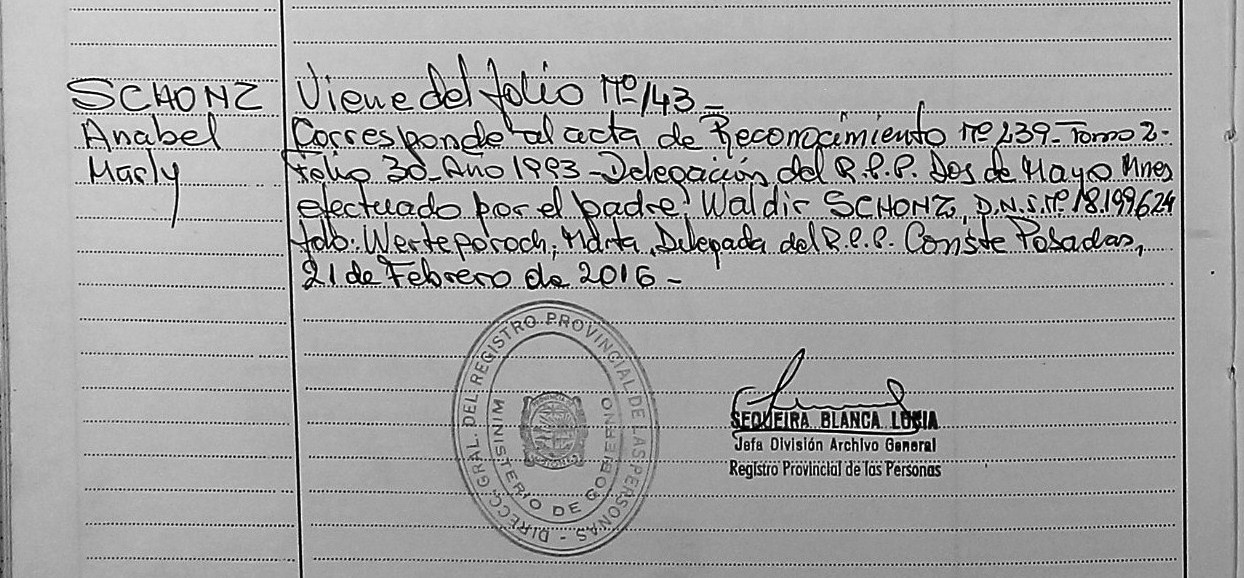 SCHONZ
Anabel
Marly
Viene del folio Nº 143 -
Corresponde al acta de Reconocimiento Nº 239 - Tomo 2 -
Folio 30 - Año 1993 - Delegación del R.P.P. Dos de Mayo Mnes
efectuado por el padre, Waldir SCHONZ, D.N.I. Nº 18.199.624
fdo: Werteporoch, Marta, Delegada del R.P.P. Conste Posadas,
21 de Febrero de 2016 -
DIRECC. GRAL. DEL REGISTRO PROVINCIAL DE LAS PERSONAS -
MINISTERIO DE GOBIERNO
SEQUEIRA BLANCA LUCIA
Jefa División Archivo General
Registro Provincial de las Personas